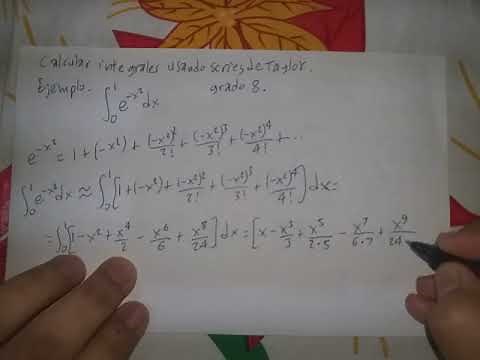 Calcular integrales usando series de Taylor.
Ejemplo. ∫₀¹ e^{-x²} dx grado 8.
e^{-x²} = 1 + (-x²) + (-x²)²/2! + (-x²)³/3! + (-x²)⁴/4! + ...
∫₀¹ e^{-x²} dx ≈ ∫₀¹ [1 + (-x²) + (-x²)²/2! + (-x²)³/3! + (-x²)⁴/4!] dx =
= ∫₀¹ [1 - x² + x⁴/2 - x⁶/6 + x⁸/24] dx = [x - x³/3 + x⁵/2·5 - x⁷/6·7 + x⁹/24